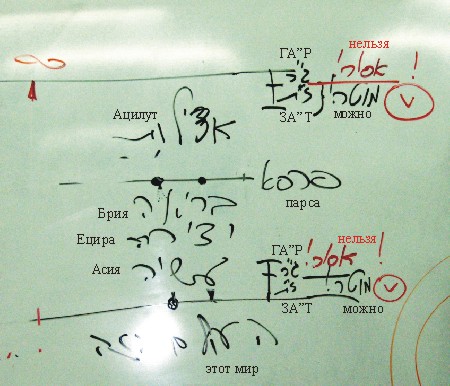 ∞
ГА"Р нельзя
ג"ר אסור!
ז"ת מותר! V
ЗА"Т можно
Ацилут
אצילות
פרסא
парса
Брия בריאה
Ецира יצירה
Асия עשיה
ГА"Р нельзя
ג"ר אסור!
ז"ת מותר! V
ЗА"Т можно
העולם הזה
этот мир